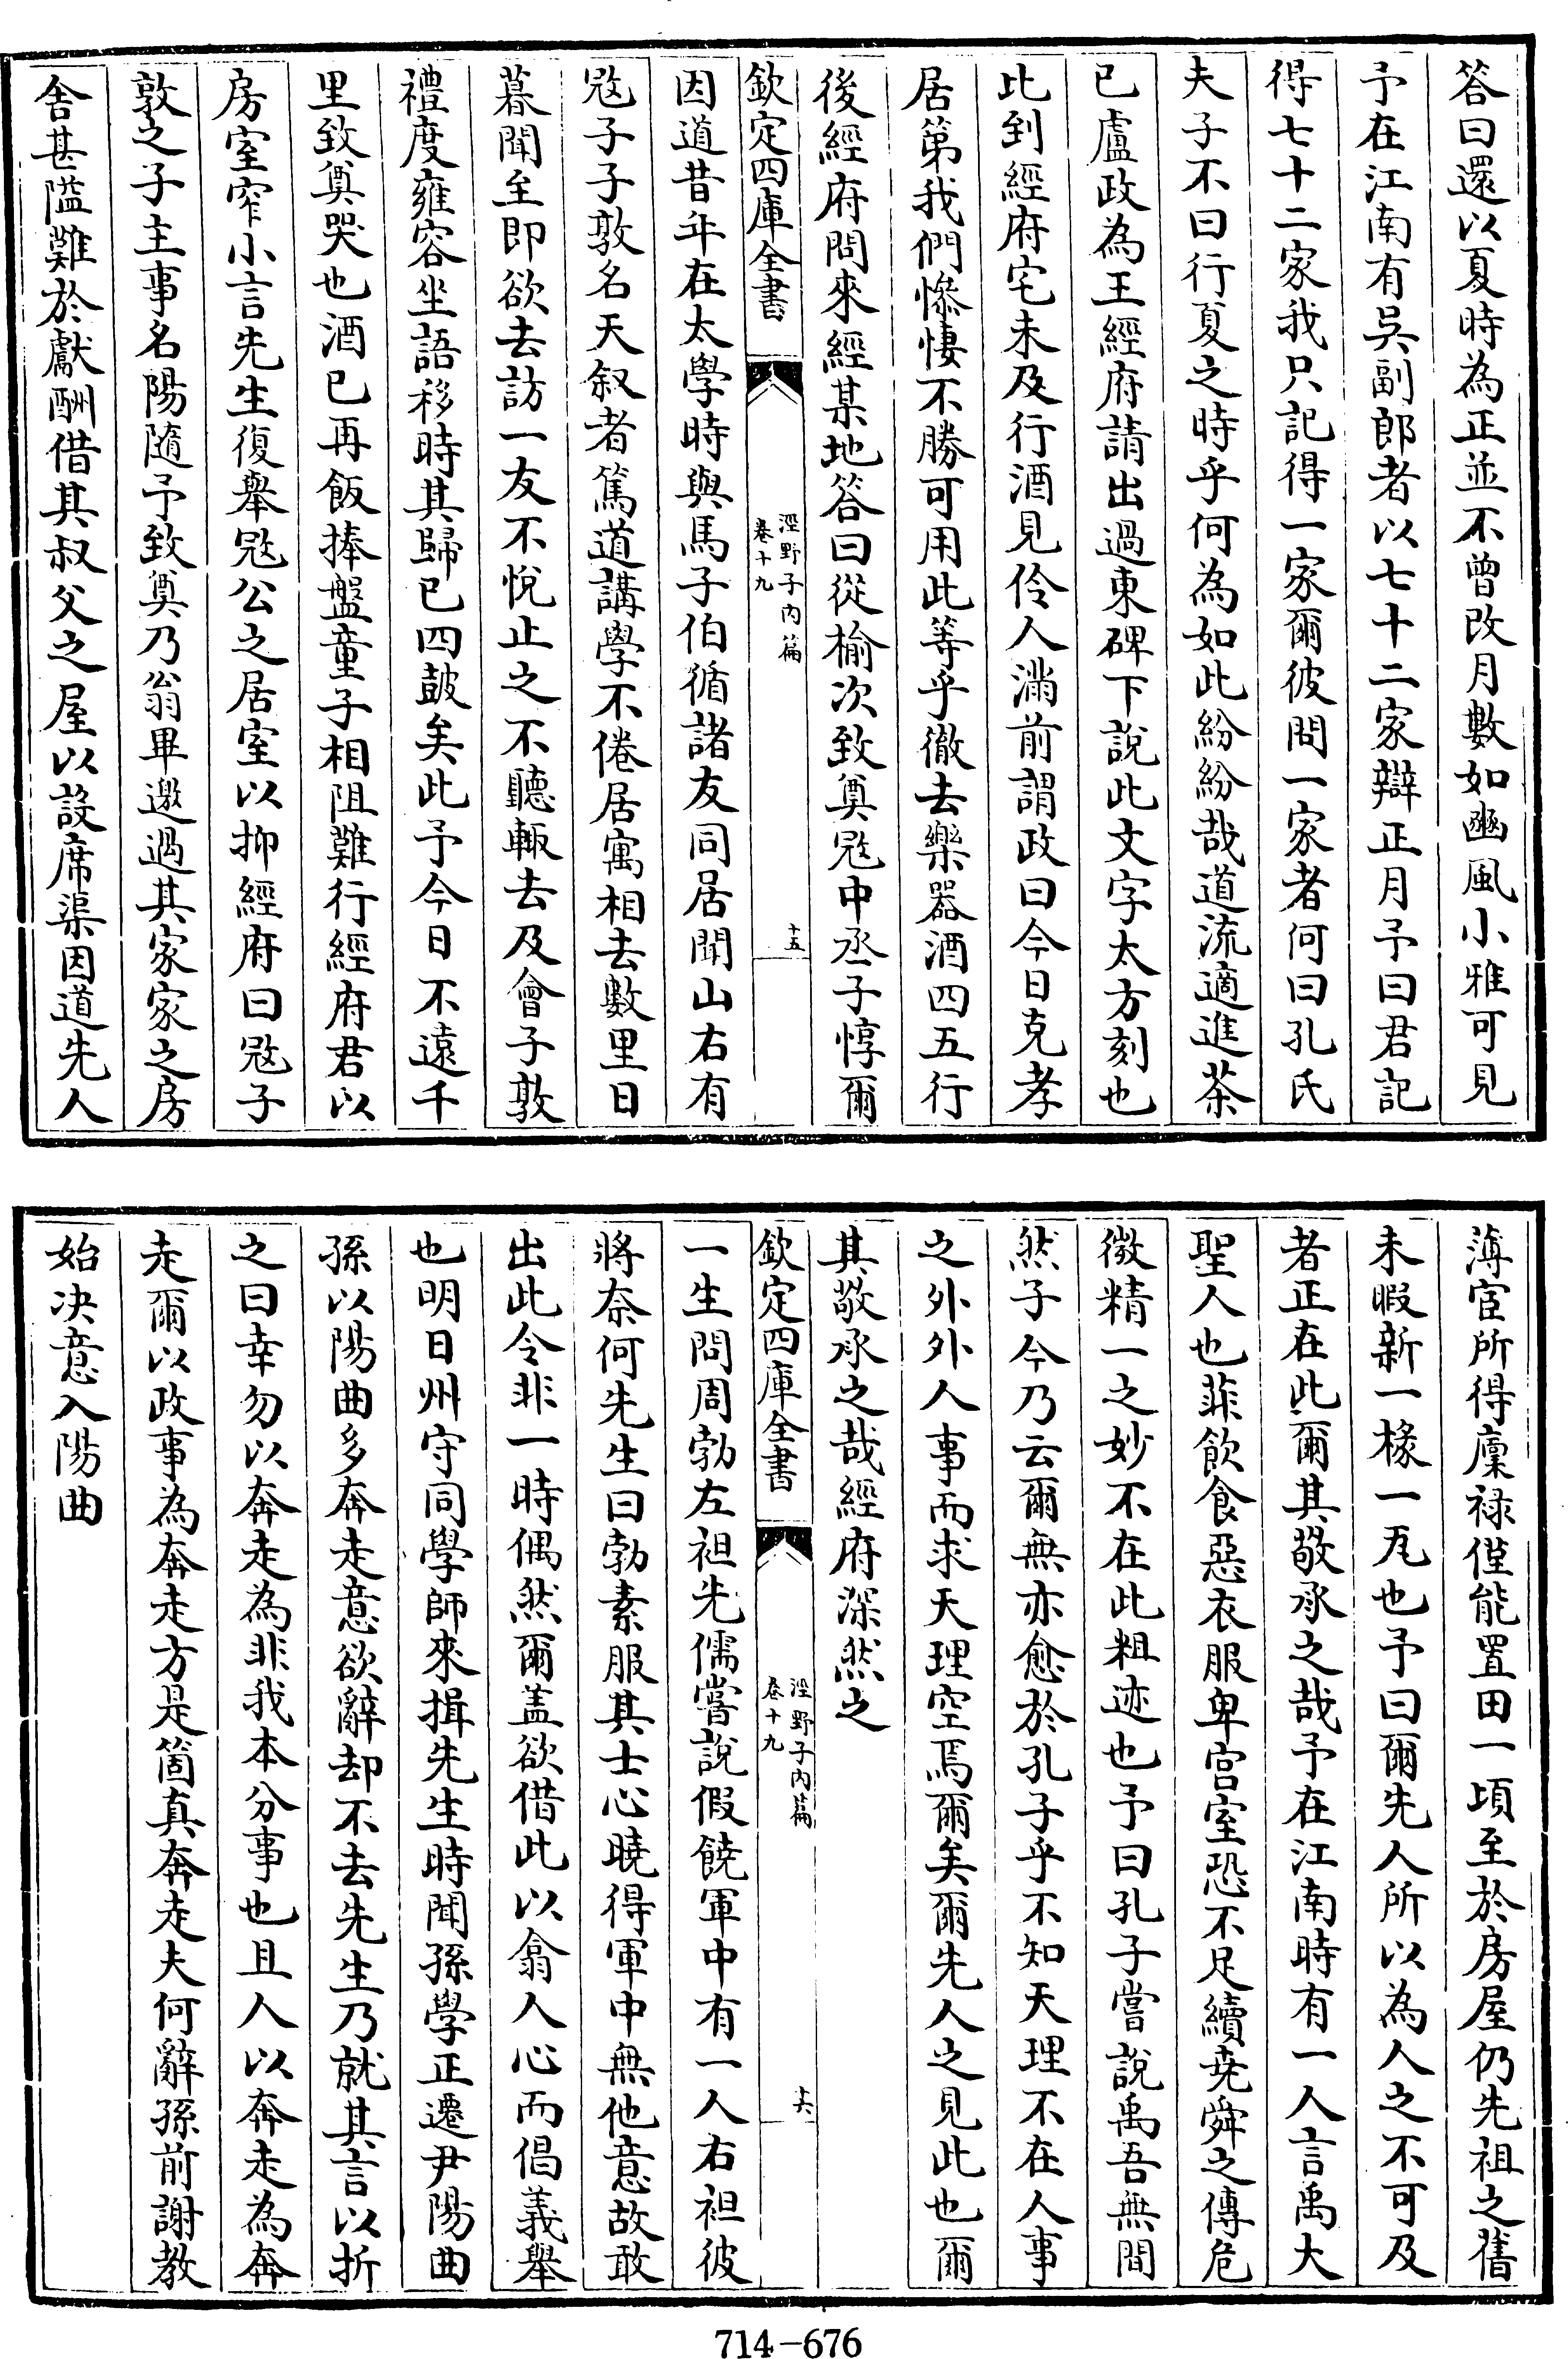 答曰還以夏時為正並不曾改月數如豳風小雅可見
予在江南有吳副郎者以七十二家辯正月予曰君記
得七十二家我只記得一家爾彼問一家者何曰孔氏
夫子不曰行夏之時乎何為如此紛紛哉道流適進茶
已盧政為王經府請出過東碑下說此文字太方刻也
此到經府宅未及行酒見伶人滿前謂政曰今日克孝
居第我們慘悽不勝可用此等乎徹去樂器酒四五行
後經府問來經某地答曰從榆次致奠㓂中丞子惇爾
欽定四庫全書
涇野子內篇
卷十九
十五
因道昔年在太學時與馬子伯循諸友同居聞山右有
㓂子子敦名天叙者篤道講學不倦居寓相去數里日
暮聞至即欲去訪一友不悅止之不聽輙去及會子敦
禮度雍容坐語移時其歸已四鼓矣此予今日不遠千
里致奠哭也酒已再飯捧盤童子相阻難行經府君以
房室窄小言先生復舉㓂公之居室以抑經府曰㓂子
敦之子主事名陽隨予致奠乃翁畢邀過其家家之房
舍甚隘難於獻酬借其叔父之屋以設席渠因道先人
薄宦所得廩祿僅能置田一頃至於房屋仍先祖之舊
未暇新一椽一瓦也予曰爾先人所以為人之不可及
者正在此爾其敬承之哉予在江南時有一人言禹大
聖人也菲飲食惡衣服卑宮室恐不足續堯舜之傳危
微精一之妙不在此粗迹也予曰孔子嘗說禹吾無間
然子今乃云爾無亦愈於孔子乎不知天理不在人事
之外外人事而求天理空焉爾矣爾先人之見此也爾
其敬承之哉經府深然之
欽定四庫全書
涇野子內篇
卷十九
十六
一生問周勃左袒先儒嘗說假饒軍中有一人右袒彼
將奈何先生曰勃素服其士心曉得軍中無他意故敢
出此令非一時偶然爾蓋欲借此以翕人心而倡義舉
也明日州守同學師來揖先生時聞孫學正遷尹陽曲
孫以陽曲多奔走意欲辭却不去先生乃就其言以折
之曰幸勿以奔走為非我本分事也且人以奔走為奔
走爾以政事為奔走方是箇真奔走夫何辭孫前謝教
始決意入陽曲
714-676